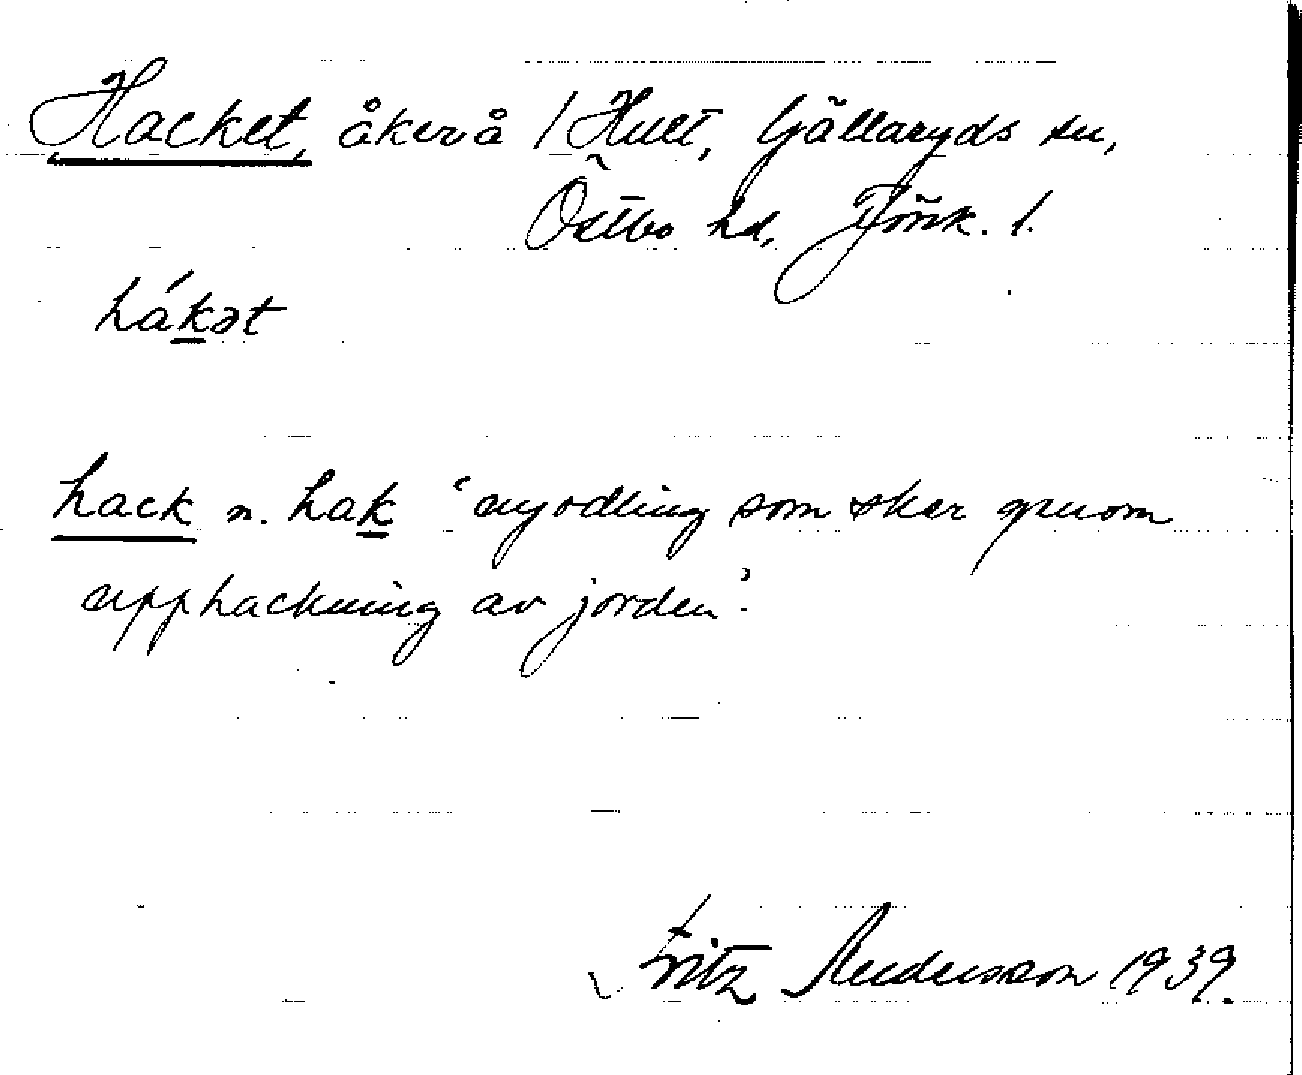 Hacket, åker å / Hult, Gällaryds sn,
Östbo hd, Jönk. l.
hákət
hack n. hak 'nyodling som sker genom
upphackning av jorden'.
Fritz Andersson 1939.